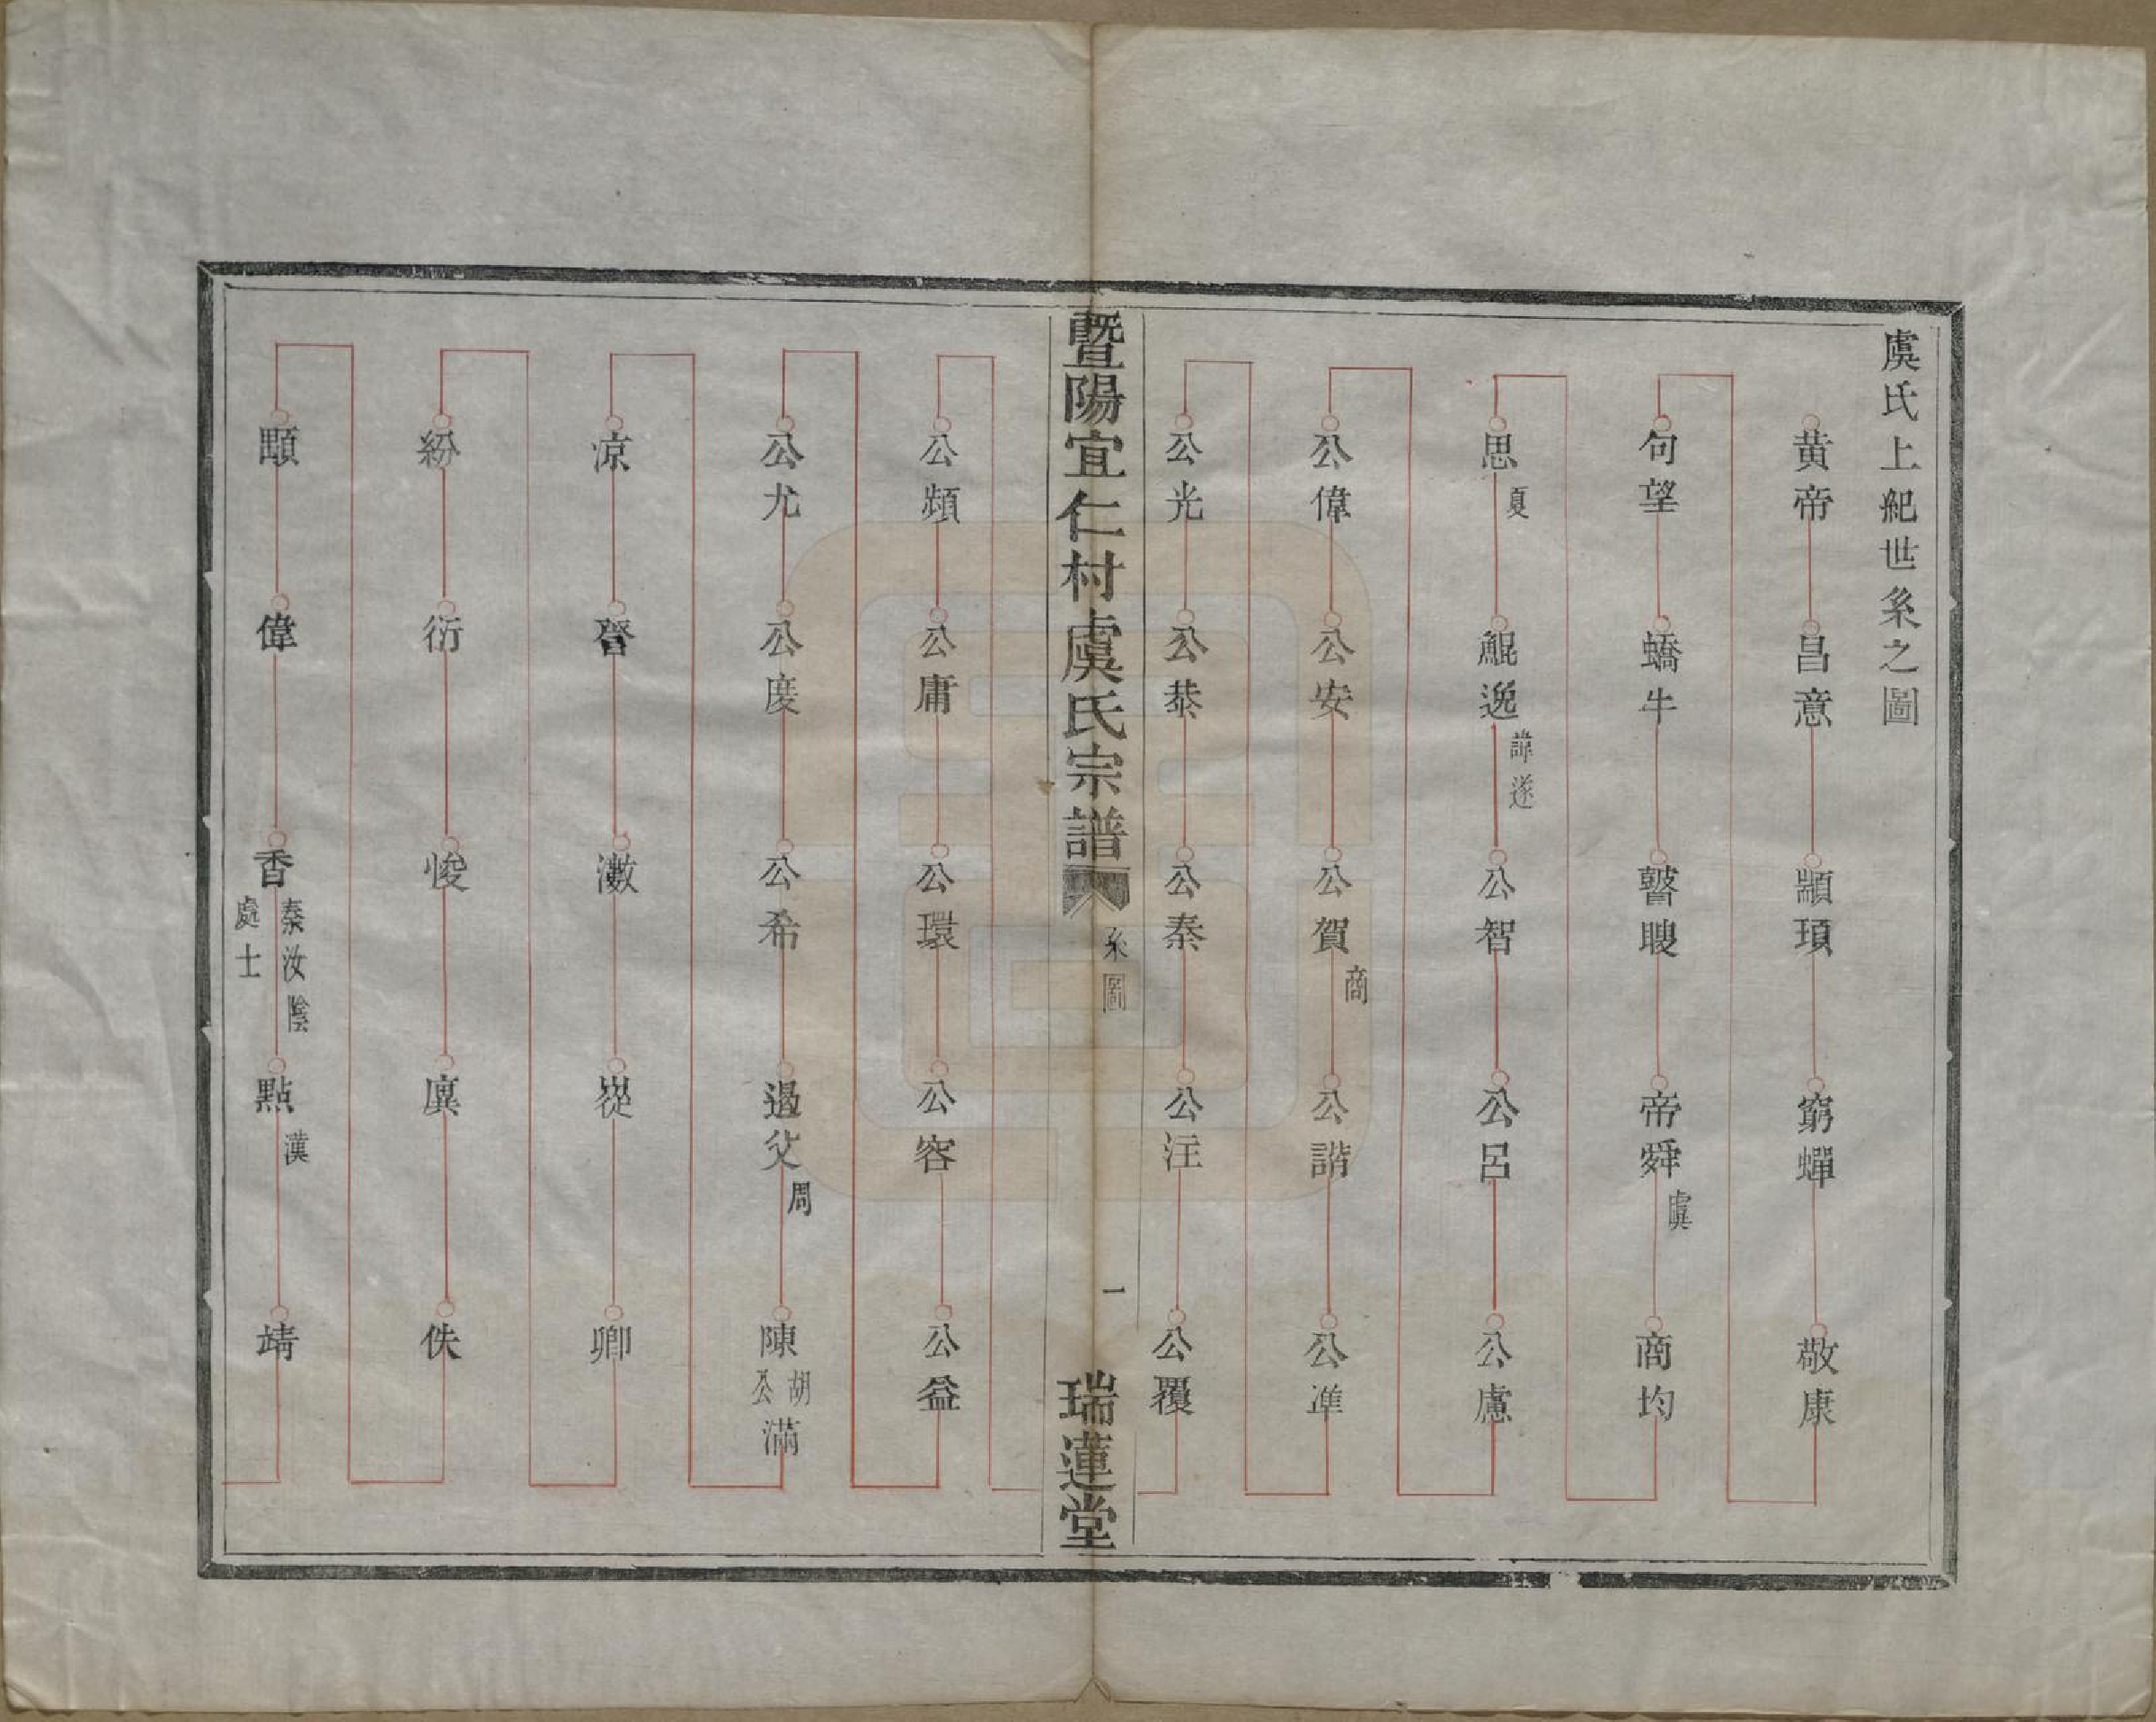 虞氏上紀世系之圖
黄帝 昌意 顓頊 窮蟬 敬康
句望 蟜牛 瞽瞍 帝舜 虞 商均
思 夏 鯤逸 諱遂 公智 公呂 公慮
公偉 公安 公賀 商 公諧 公準
公光 公恭 公秦 公汪 公覆
暨陽宜仁村虞氏宗譜 系圖 一 瑞蓮堂
公頻 公庸 公環 公容 公益
公尤 公度 公希 遏父 周 陳胡公滿
凉 敫 嵸 卿
紛 衍 悛 佚
顒 偉 香 秦汝陰處士 點 漢 靖